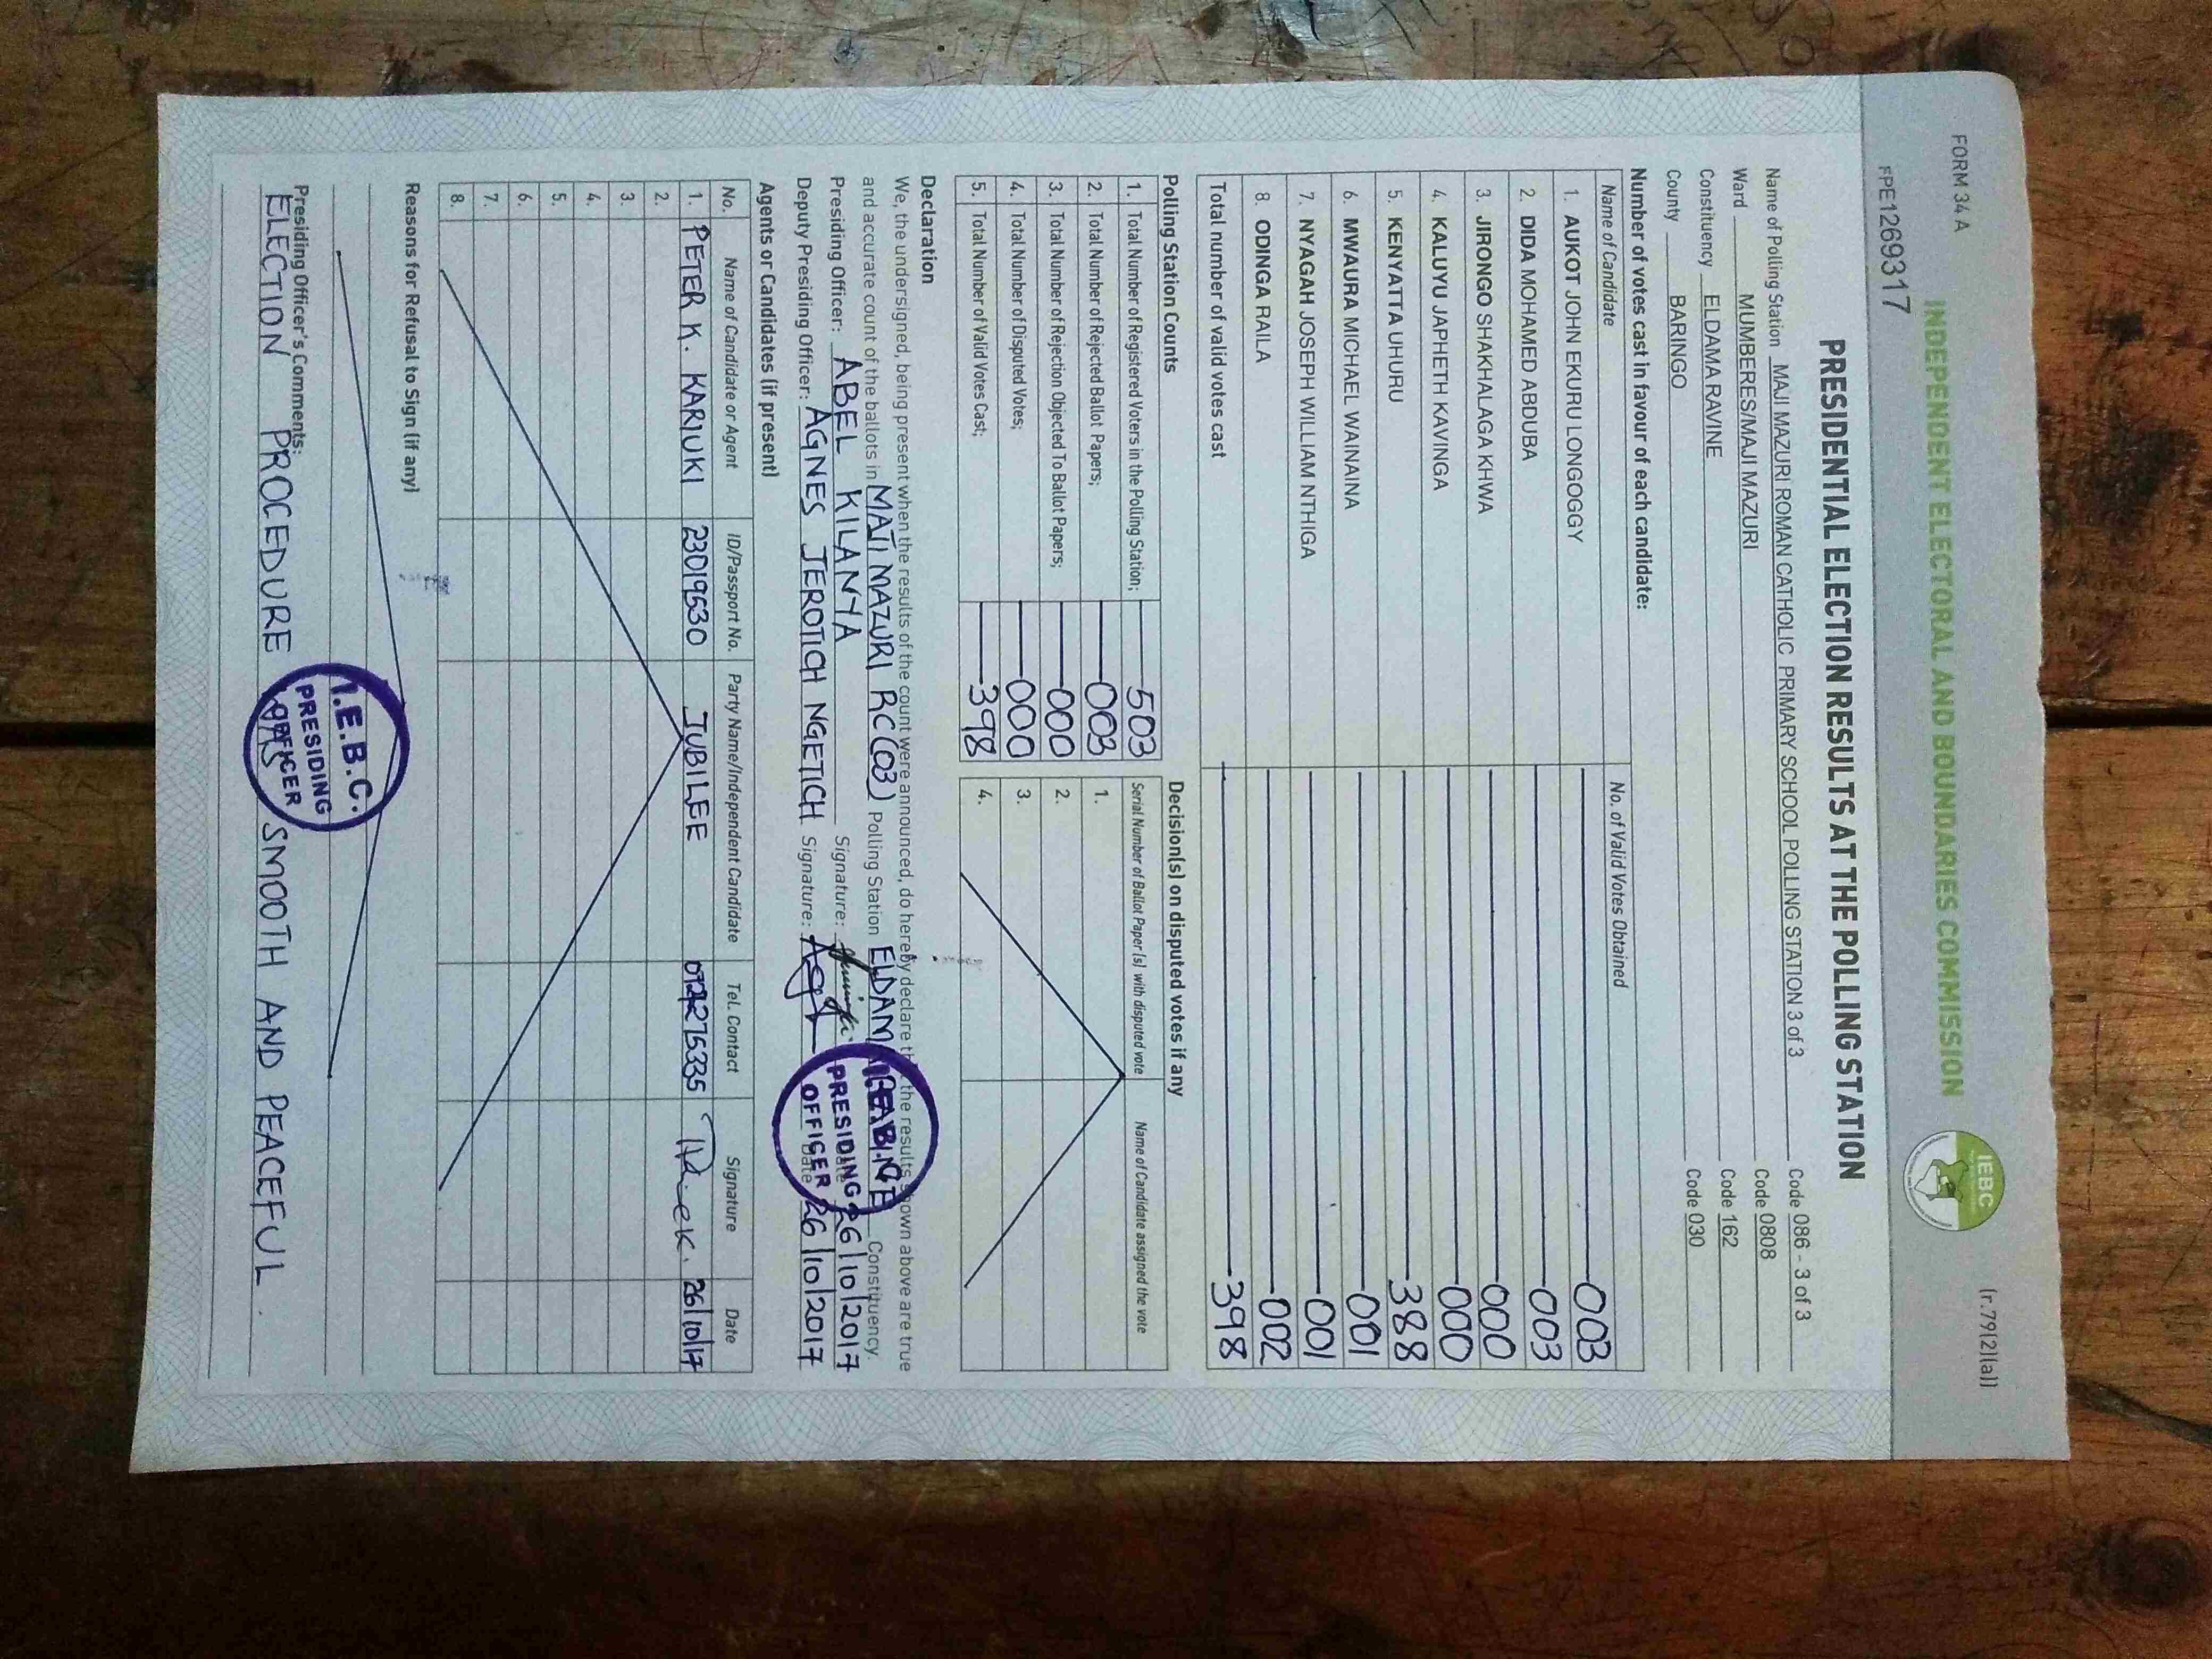 FORM 34 A
(r.79(2)(a))
INDEPENDENT ELECTORAL AND BOUNDARIES COMMISSION
IEBC
FPE1269317
PRESIDENTIAL ELECTION RESULTS AT THE POLLING STATION
Name of Polling Station MAJI MAZURI ROMAN CATHOLIC PRIMARY SCHOOL POLLING STATION 3 of 3 Code 086 - 3 of 3
Ward MUMBERES/MAJI MAZURI Code 0808
Constituency ELDAMA RAVINE Code 162
County BARINGO Code 030
Number of votes cast in favour of each candidate:
Name of Candidate No. of Valid Votes Obtained
1. AUKOT JOHN EKURU LONGOGGY 003
2. DIDA MOHAMED ABDUBA 003
3. JIRONGO SHAKHALAGA KHWA 000
4. KALUYU JAPHETH KAVINGA 000
5. KENYATTA UHURU 388
6. MWAURA MICHAEL WAINAINA 001
7. NYAGAH JOSEPH WILLIAM NTHIGA 001
8. ODINGA RAILA 002
Total number of valid votes cast 398
Polling Station Counts
1. Total Number of Registered Voters in the Polling Station; 503
2. Total Number of Rejected Ballot Papers; 003
3. Total Number of Rejection Objected To Ballot Papers; 000
4. Total Number of Disputed Votes; 000
5. Total Number of Valid Votes Cast; 398
Decision(s) on disputed votes if any
Serial Number of Ballot Paper (s) with disputed vote Name of Candidate assigned the vote
1.
2.
3.
4.
Declaration
We, the undersigned, being present when the results of the count were announced, do hereby declare that the results shown above are true
and accurate count of the ballots in MAJI MAZURI RC (03) Polling Station ELDAMA RAVINE Constituency.
Presiding Officer: ABEL KILANYA Signature: Date 26/10/2017
Deputy Presiding Officer: AGNES JEROTICH NGETICH Signature: Date 26/10/2017
I.E.B.C.
PRESIDING
OFFICER
Agents or Candidates (if present)
No. Name of Candidate or Agent ID/Passport No. Party Name/Independent Candidate Tel. Contact Signature Date
1. PETER K. KARIUKI 23019530 JUBILEE 26/10/17
2.
3.
4.
5.
6.
7.
8.
Reasons for Refusal to Sign (if any)
I.E.B.C.
PRESIDING
OFFICER
Presiding Officer's Comments:
ELECTION PROCEDURE WAS SMOOTH AND PEACEFUL.